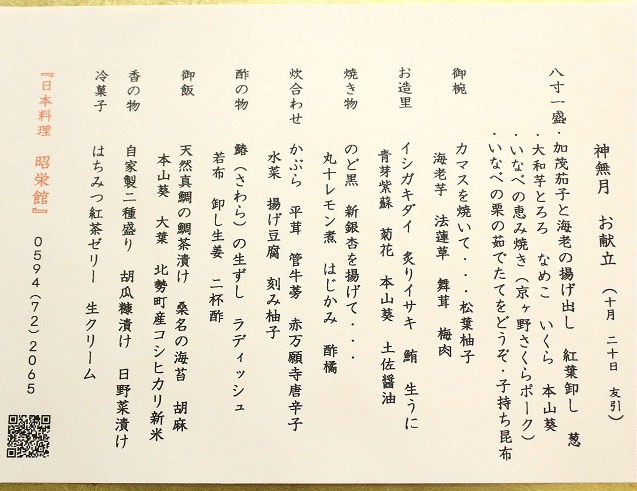 神無月　お献立　（十月　二十日　友引）
八寸一盛・加茂茄子と海老の揚げ出し　紅葉卸し　葱
・大和芋とろろ　なめこ　いくら　本山葵
・いなべの恵み焼き（京ヶ野さくらポーク）
・いなべの栗の茹でたてをどうぞ・子持ち昆布
御椀　カマスを焼いて・・・松葉柚子
海老芋　法蓮草　舞茸　梅肉
お造里　イシガキダイ　炙りイサキ　鮪　生うに
青芽紫蘇　菊花　本山葵　土佐醤油
焼き物　のど黒　新銀杏を揚げて・・・
丸十レモン煮　はじかみ　酢橘
炊合わせ　かぶら　平茸　管牛蒡　赤万願寺唐辛子
水菜　揚げ豆腐　刻み柚子
酢の物　鰆（さわら）の生ずし　ラディッシュ
若布　卸し生姜　二杯酢
御飯　天然真鯛の鯛茶漬け　桑名の海苔　胡麻
本山葵　大葉　北勢町産コシヒカリ新米
香の物　自家製二種盛り　胡瓜糠漬け　日野菜漬け
冷菓子　はちみつ紅茶ゼリー　生クリーム
『日本料理　昭栄館』　０５９４（７２）２０６５